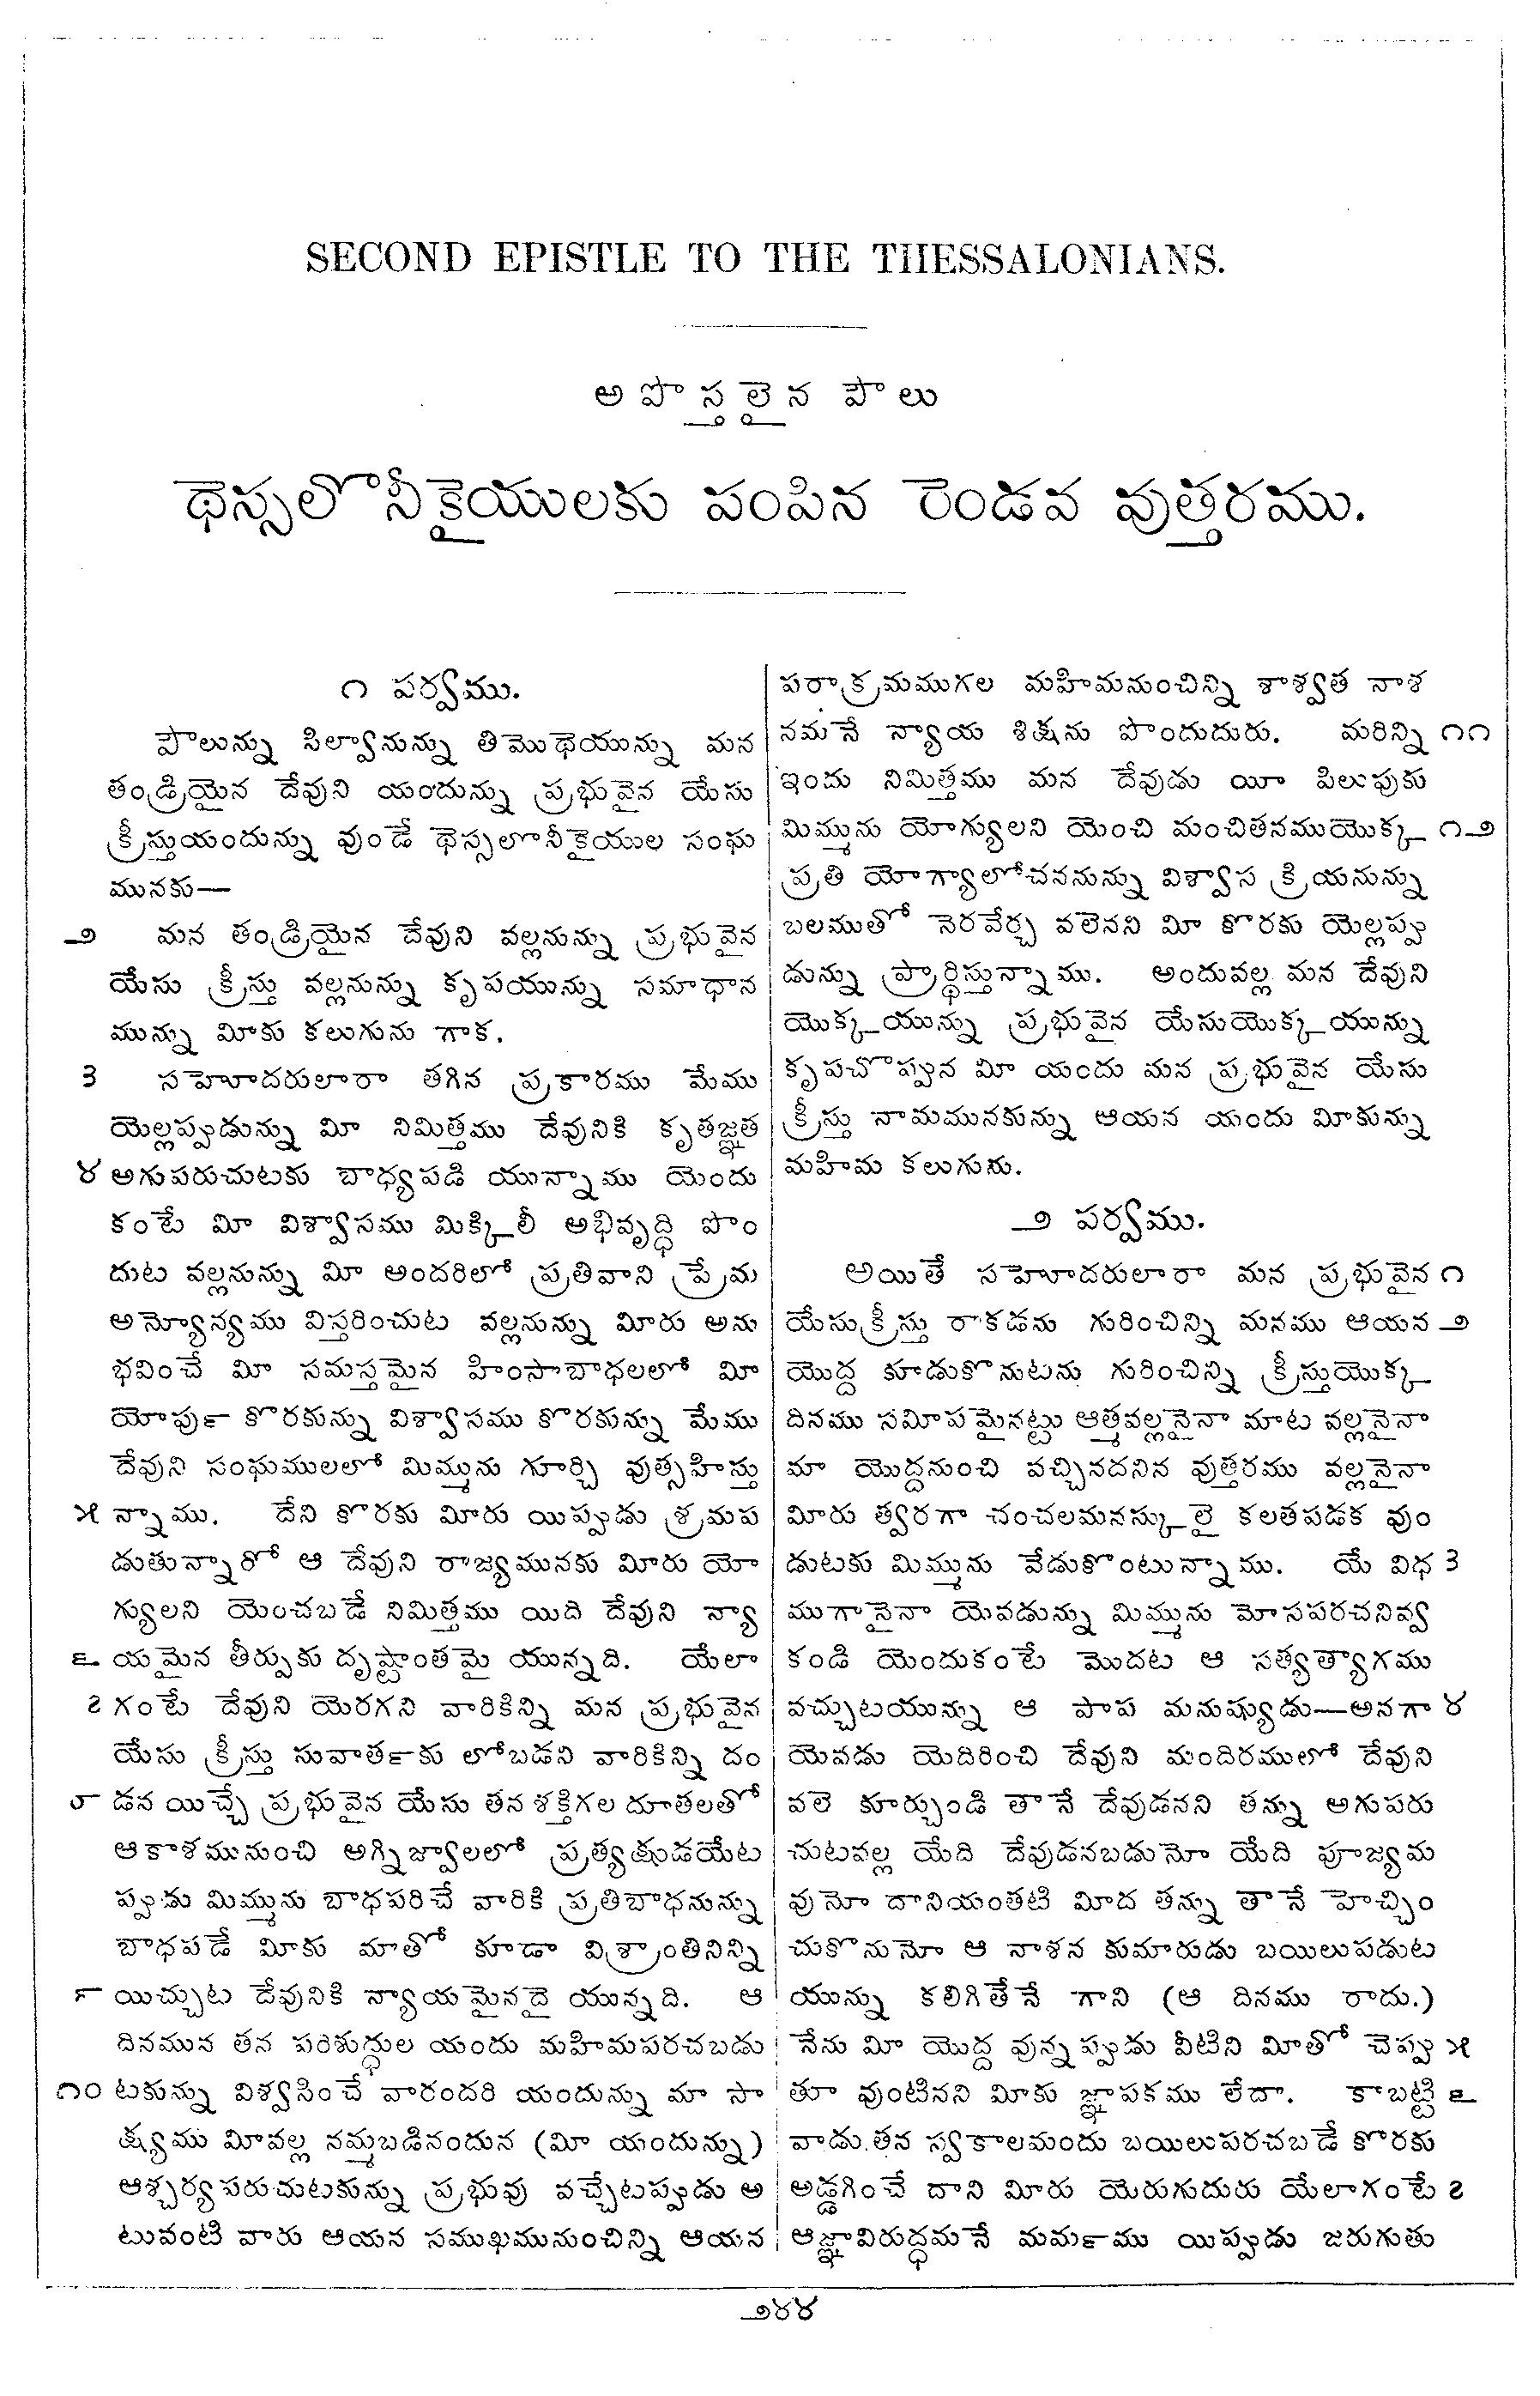 SECOND EPISTLE TO THE THESSALONIANS.
అపొస్తలైన పౌలు
థెస్సలొనీకైయులకు పంపిన రెండవ వుత్తరము.
౧ పర్వము.
పౌలున్ను సిల్వానున్ను తిమొథెయున్ను మన
తండ్రియైన దేవుని యందున్ను ప్రభువైన యేసు
క్రీస్తుయందున్ను వుండే థెస్సలొనీకైయుల సంఘ
మునకు—
౨ మన తండ్రియైన దేవుని వల్లనున్ను ప్రభువైన
యేసు క్రీస్తు వల్లనున్ను కృపయున్ను సమాధాన
మున్ను మీకు కలుగును గాక.
౩ సహోదరులారా తగిన ప్రకారము మేము
యెల్లప్పుడున్ను మీ నిమిత్తము దేవునికి కృతజ్ఞత
౪ అగుపరుచుటకు బాధ్యపడి యున్నాము యెందు
కంటే మీ విశ్వాసము మిక్కిలీ అభివృద్ధి పొం
దుట వల్లనున్ను మీ అందరిలో ప్రతివాని ప్రేమ
అన్యోన్యము విస్తరించుట వల్లనున్ను మీరు అను
భవించే మీ సమస్తమైన హింసాబాధలలో మీ
యోపుఁ కొరకున్ను విశ్వాసము కొరకున్ను మేము
దేవుని సంఘములలో మిమ్మును గూర్చి వుత్సహిస్తు
౫ న్నాము. దేని కొరకు మీరు యిప్పుడు శ్రమప
డుతున్నారో ఆ దేవుని రాజ్యమునకు మీరు యో
గ్యులని యెంచబడే నిమిత్తము యిది దేవుని న్యా
౬ యమైన తీర్పుకు దృష్టాంతమై యున్నది. యేలా
౭ గంటే దేవుని యెరగని వారికిన్ని మన ప్రభువైన
యేసు క్రీస్తు సువార్తకు లోబడని వారికిన్ని దం
౮ డన యిచ్చే ప్రభువైన యేసు తన శక్తిగల దూతలతో
ఆకాశమునుంచి అగ్నిజ్వాలలో ప్రత్యక్షుడయేట
ప్పుడు మిమ్మును బాధపరిచే వారికి ప్రతిబాధనున్ను
బాధపడే మీకు మాతో కూడా విశ్రాంతినిన్ని
౯ యిచ్చుట దేవునికి న్యాయమైనదై యున్నది. ఆ
దినమున తన పరిశుద్ధుల యందు మహిమపరచబడు
౧౦ టకున్ను విశ్వసించే వారందరి యందున్ను మా సా
క్ష్యము మీవల్ల నమ్మబడినందున (మీ యందున్ను)
ఆశ్చర్యపరుచుటకున్ను ప్రభువు వచ్చేటప్పుడు అ
టువంటి వారు ఆయన సముఖమునుంచిన్ని ఆయన
పరాక్రమముగల మహిమనుంచిన్ని శాశ్వత నాశ
నమనే న్యాయ శిక్షను పొందుదురు. మరిన్ని ౧౧
ఇందు నిమిత్తము మన దేవుడు యీ పిలుపుకు
మిమ్మును యోగ్యులని యెంచి మంచితనముయొక్క ౧౨
ప్రతి యోగ్యాలోచననున్ను విశ్వాస క్రియనున్ను
బలముతో నెరవేర్చ వలెనని మీ కొరకు యెల్లప్పు
డున్ను ప్రార్థిస్తున్నాము. అందువల్ల మన దేవుని
యొక్కయున్ను ప్రభువైన యేసుయొక్కయున్ను
కృపచొప్పున మీ యందు మన ప్రభువైన యేసు
క్రీస్తు నామమునకున్ను ఆయన యందు మీకున్ను
మహిమ కలుగును.
౨ పర్వము.
అయితే సహోదరులారా మన ప్రభువైన ౧
యేసుక్రీస్తు రాకడను గురించిన్ని మనము ఆయన ౨
యొద్ద కూడుకొనుటను గురించిన్ని క్రీస్తుయొక్క
దినము సమీపమైనట్టు ఆత్మవల్లనైనా మాట వల్లనైనా
మా యొద్దనుంచి వచ్చినదనిన వుత్తరము వల్లనైనా
మీరు త్వరగా చంచలమనస్కులై కలతపడక వుం
డుటకు మిమ్మును వేడుకొంటున్నాము. యే విధ ౩
ముగానైనా యెవడున్ను మిమ్మును మోసపరచనివ్వ
కండి యెందుకంటే మొదట ఆ సత్యత్యాగము
వచ్చుటయున్ను ఆ పాప మనుష్యుడు—అనగా ౪
యెవడు యెదిరించి దేవుని మందిరములో దేవుని
వలె కూర్చుండి తానే దేవుడనని తన్ను అగుపరు
చుటవల్ల యేది దేవుడనబడునో యేది పూజ్యమ
వునో దానియంతటి మీద తన్ను తానే హెచ్చిం
చుకొనునో ఆ నాశన కుమారుడు బయిలుపడుట
యున్ను కలిగితేనే గాని (ఆ దినము రాదు.)
నేను మీ యొద్ద వున్నప్పుడు వీటిని మీతో చెప్పు ౫
తూ వుంటినని మీకు జ్ఞాపకము లేదా. కాబట్టి ౬
వాడు తన స్వకాలమందు బయిలుపరచబడే కొరకు
అడ్డగించే దాని మీరు యెరుగుదురు యేలాగంటే ౭
ఆజ్ఞావిరుద్ధమనే మర్మము యిప్పుడు జరుగుతు
౨౪౪